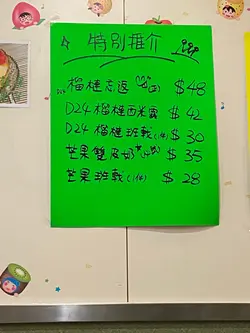 特別推介
榴槤忘返 $48
D24榴槤西米露 $42
D24榴槤班戟(1件) $30
芒果雙皮奶 $35
芒果班戟(1件) $28